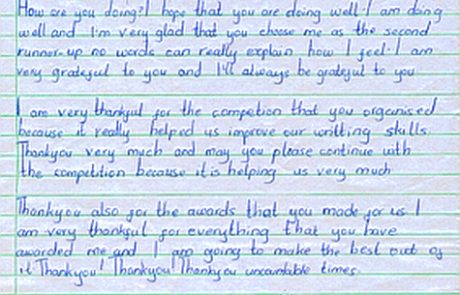 How are you doing? I hope that you are doing well. I am doing
well and I'm very glad that you choose me as the second
runner-up no words can really explain how I feel. I am
very grateful to you and I'll always be grateful to you
I am very thankful for the competion that you organised
because it really helped us improve our writting skills
Thankyou very much and may you please continue with
the competition because it is helping us very much
Thankyou also for the awards that you made for us I
am very thankful for everything that you have
awarded me and I am going to make the best out of
it Thankyou! Thankyou! Thankyou uncountable times.